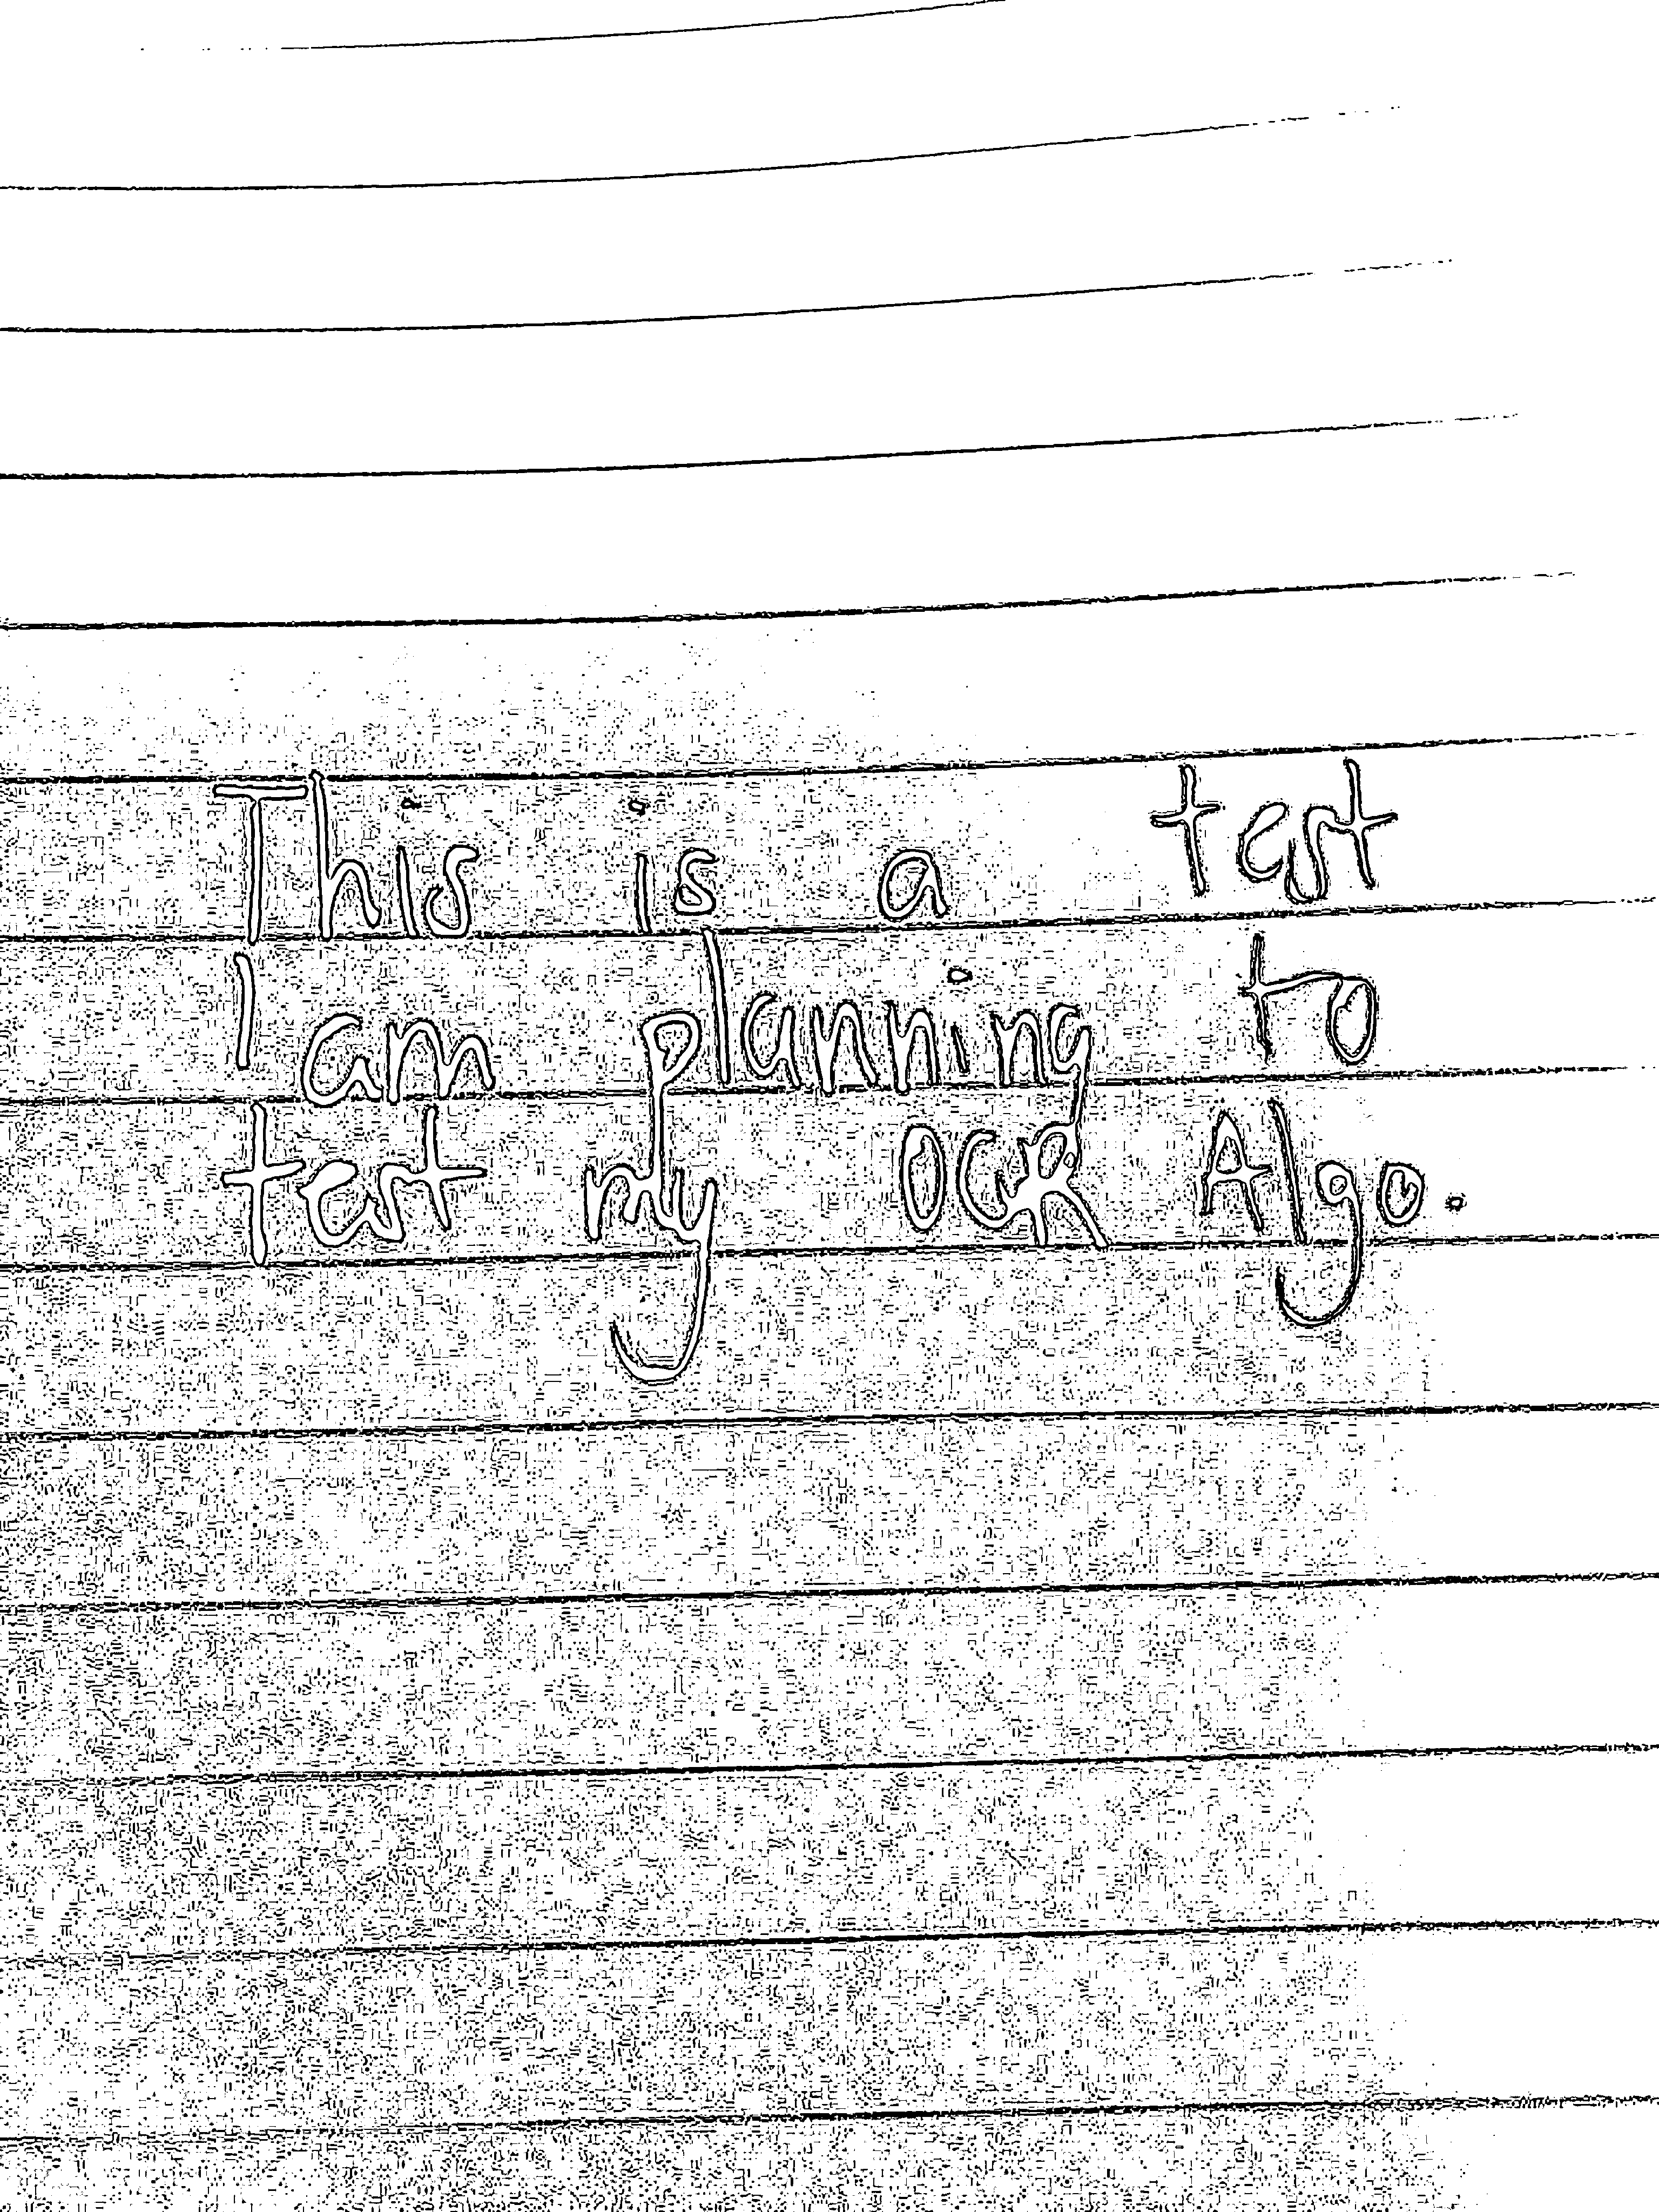 This is a test
I am planning to
test my OCR Algo.